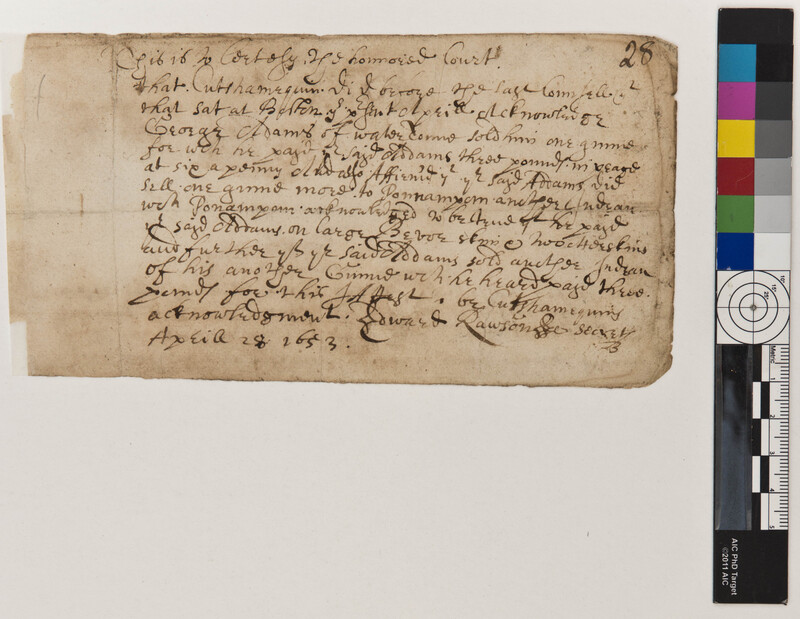 28
This is to Certefy the honnored Court
that Cutshamequin did before the last Counsell
that sat at Boston ys psent Aprill Acknowledge
George Addams of watertoune sold him one gunne
for wch he payd ye sayd Addams three pounds in peage
at six a penny And also Affirmd yt ye sayd Addams did
sell one gunne more to Ponnampom another Indean
wch Ponampom acknowledged to be true & he payd
ye sayd Addams on large Bevor skin & two otterskins
and further yt ye said Addams sold another Indean
of his another Gunne wch he heard payd three
pounds for this I Attest by Cutshamequins
acknowledgment. Edward Rawson Secrety
Aprill 28 1653.
Metric
1
2
3
4
5
AIC PhD Target
©2011 AIC